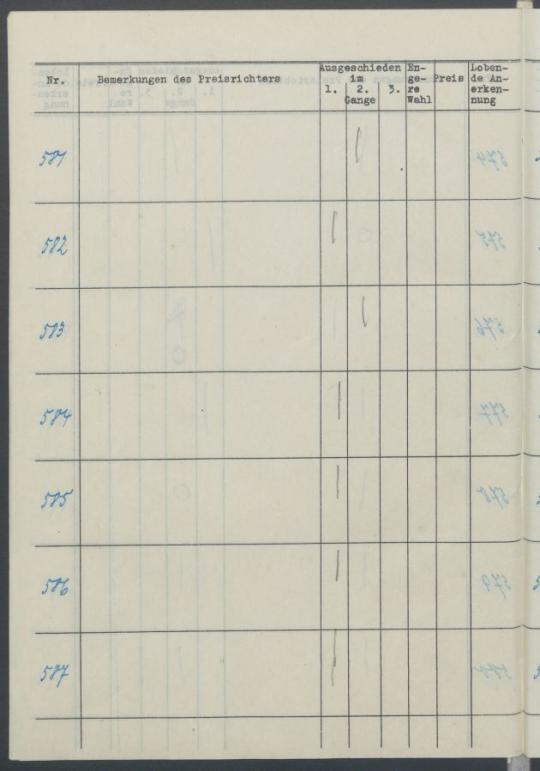 Nr. Bemerkungen des Preisrichters Ausgeschieden im 1. 2. 3. Gange En-ge-re Wahl Preis Loben-de An-erken-nung
581
582
583
584
585
586
587